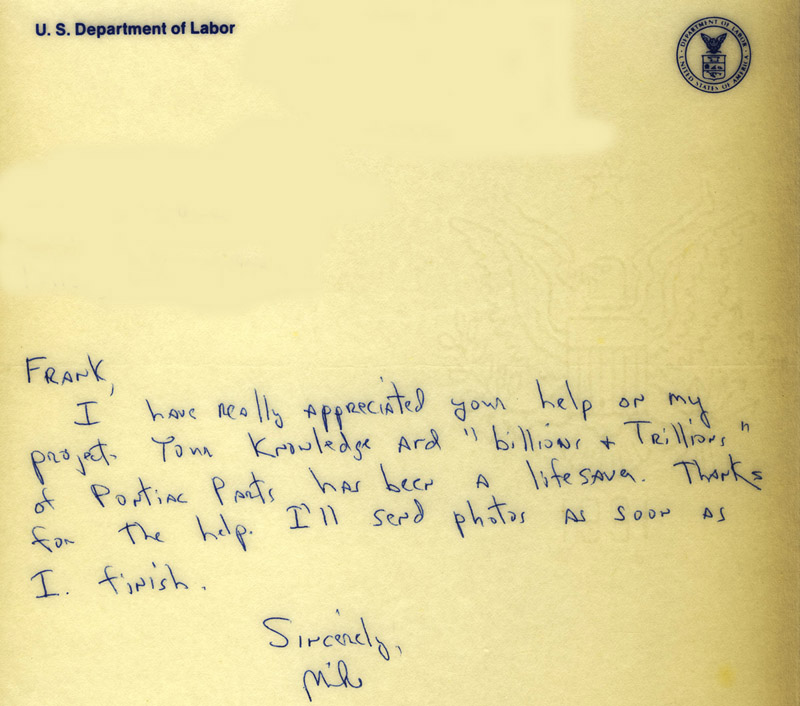 U. S. Department of Labor
DEPARTMENT OF LABOR
UNITED STATES OF AMERICA
FRANK,
I have really appreciated your help on my
project. Your Knowledge and "billions + Trillions"
of Pontiac Parts has been a lifesaver. Thanks
for the help. I'll send photos as soon as
I. finish.
Sincerely,
Mike